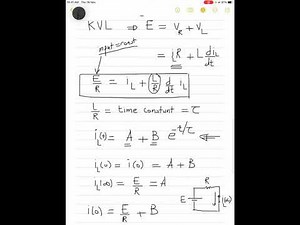 KVL ⇒ E = V_R + V_L
= iR + L di_L/dt
input = const
E/R = i_L + (L/R) d/dt i_L
L/R = time constant = τ
i_L(t) = A + B e^(-t/τ) ⇐
i_L(0) = i(0) = A + B
i_L(∞) = E/R = A
i(0) = E/R + B
R
E
i(∞)